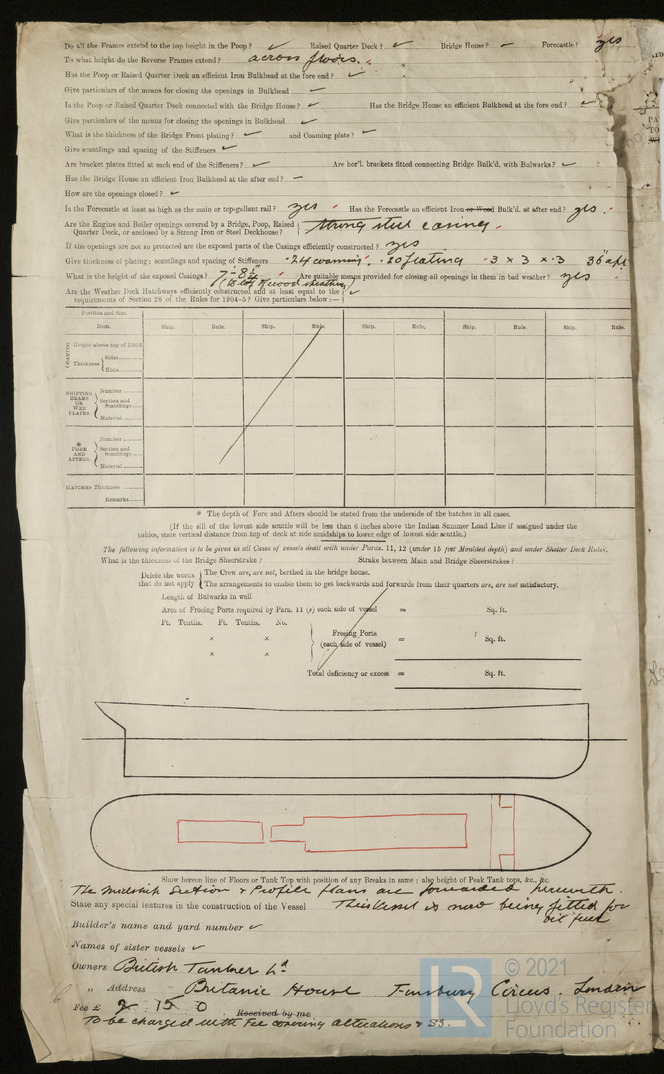 Do all the Frames extend to the top height in the Poop? ✓ Raised Quarter Deck? ✓ Bridge House? – Forecastle? yes
To what height do the Reverse Frames extend? across floors.
Has the Poop or Raised Quarter Deck an efficient Iron Bulkhead at the fore end? ✓
Give particulars of the means for closing the openings in Bulkhead –
Is the Poop or Raised Quarter Deck connected with the Bridge House? ✓ Has the Bridge House an efficient Bulkhead at the fore end? ✓
Give particulars of the means for closing the openings in Bulkhead ✓
What is the thickness of the Bridge Front plating? ✓ and Coaming plate? ✓
Give scantlings and spacing of the Stiffeners ✓
Are bracket plates fitted at each end of the Stiffeners? ✓ Are hor'l. brackets fitted connecting Bridge Bulk'd. with Bulwarks? ✓
Has the Bridge House an efficient Iron Bulkhead at the after end? –
How are the openings closed? ✓
Is the Forecastle at least as high as the main or top-gallant rail? yes Has the Forecastle an efficient Iron or Wood Bulk'd. at after end? yes.
Are the Engine and Boiler openings covered by a Bridge, Poop, Raised
Quarter Deck, or enclosed by a Strong Iron or Steel Deckhouse? strong steel casing.
If the openings are not so protected are the exposed parts of the Casings efficiently constructed? yes
Give thickness of plating; scantlings and spacing of Stiffeners .24 coaming. .20 plating 3 x 3 x .3 36" apt
What is the height of the exposed Casings? 7'-8½" Are suitable means provided for closing all openings in them in bad weather? yes
Are the Weather Deck Hatchways efficiently constructed and at least equal to the ✓ of wood sheathing)
requirements of Section 28 of the Rules for 1904-5? Give particulars below:—
Position and Size.
Item. Ship. Rule. Ship. Rule. Ship. Rule. Ship. Rule. Ship. Rule.
COAMING Height above top of DECK
Thickness Sides
Ends
SHIFTING BEAMS OR WEB PLATES. Number
Section and Scantlings
Material
* FORE AND AFTERS. Number
Section and Scantlings
Material
HATCHES Thickness
Remarks
* The depth of Fore and Afters should be stated from the underside of the hatches in all cases.
(If the sill of the lowest side scuttle will be less than 6 inches above the Indian Summer Load Line if assigned under the
tables, state vertical distance from top of deck at side amidships to lower edge of lowest side scuttle.)
The following information is to be given in all Cases of vessels dealt with under Paras. 11, 12 (under 15 feet Moulded depth) and under Shelter Deck Rules.
What is the thickness of the Bridge Sheerstrake? Strake between Main and Bridge Sheerstrakes?
Delete the words that do not apply The Crew are, are not, berthed in the bridge house.
The arrangements to enable them to get backwards and forwards from their quarters are, are not satisfactory.
Length of Bulwarks in well
Area of Freeing Ports required by Para. 11 (e) each side of vessel = Sq. ft.
Ft. Tenths. Ft. Tenths. No.
× ×
× ×
Freeing Ports (each side of vessel) = Sq. ft.
Total deficiency or excess = Sq. ft.
Show hereon line of Floors or Tank Top with position of any Breaks in same; also height of Peak Tank tops, &c., &c.
The Midship Section & Profile plans are forwarded herewith.
State any special features in the construction of the Vessel This Vessel is now being fitted for
oil fuel
Builder's name and yard number ✓
Names of sister vessels ✓
Owners British Tanker Ld
„ Address Britanic House Finsbury Circus. London
Fee £ 2 . 15 . 0 Received by me
To be charged with Fee covering alterations & SS.
© 2021
LR
Lloyd's Register
Foundation